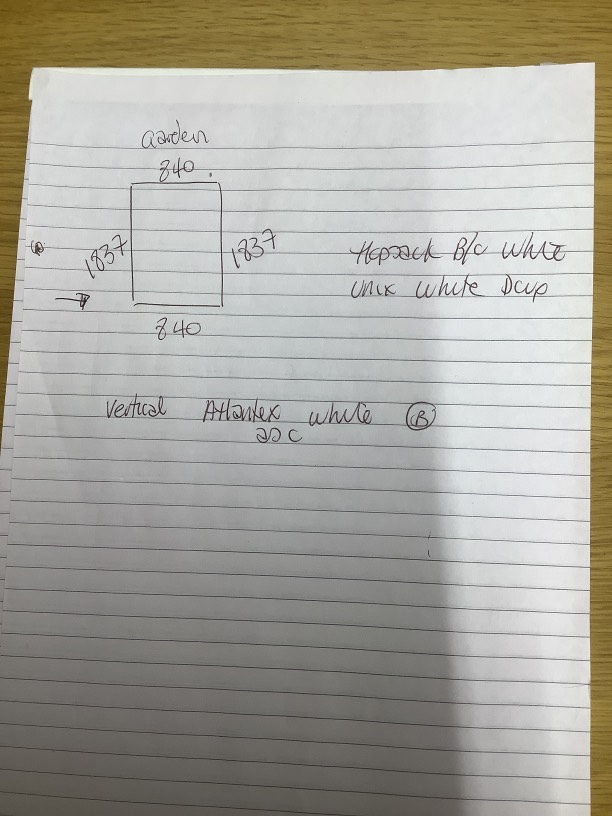 Garden
840
1837
1837
840
Hopsack B/c White
Unix White Dcup
Vertical Atlantex white B
asc